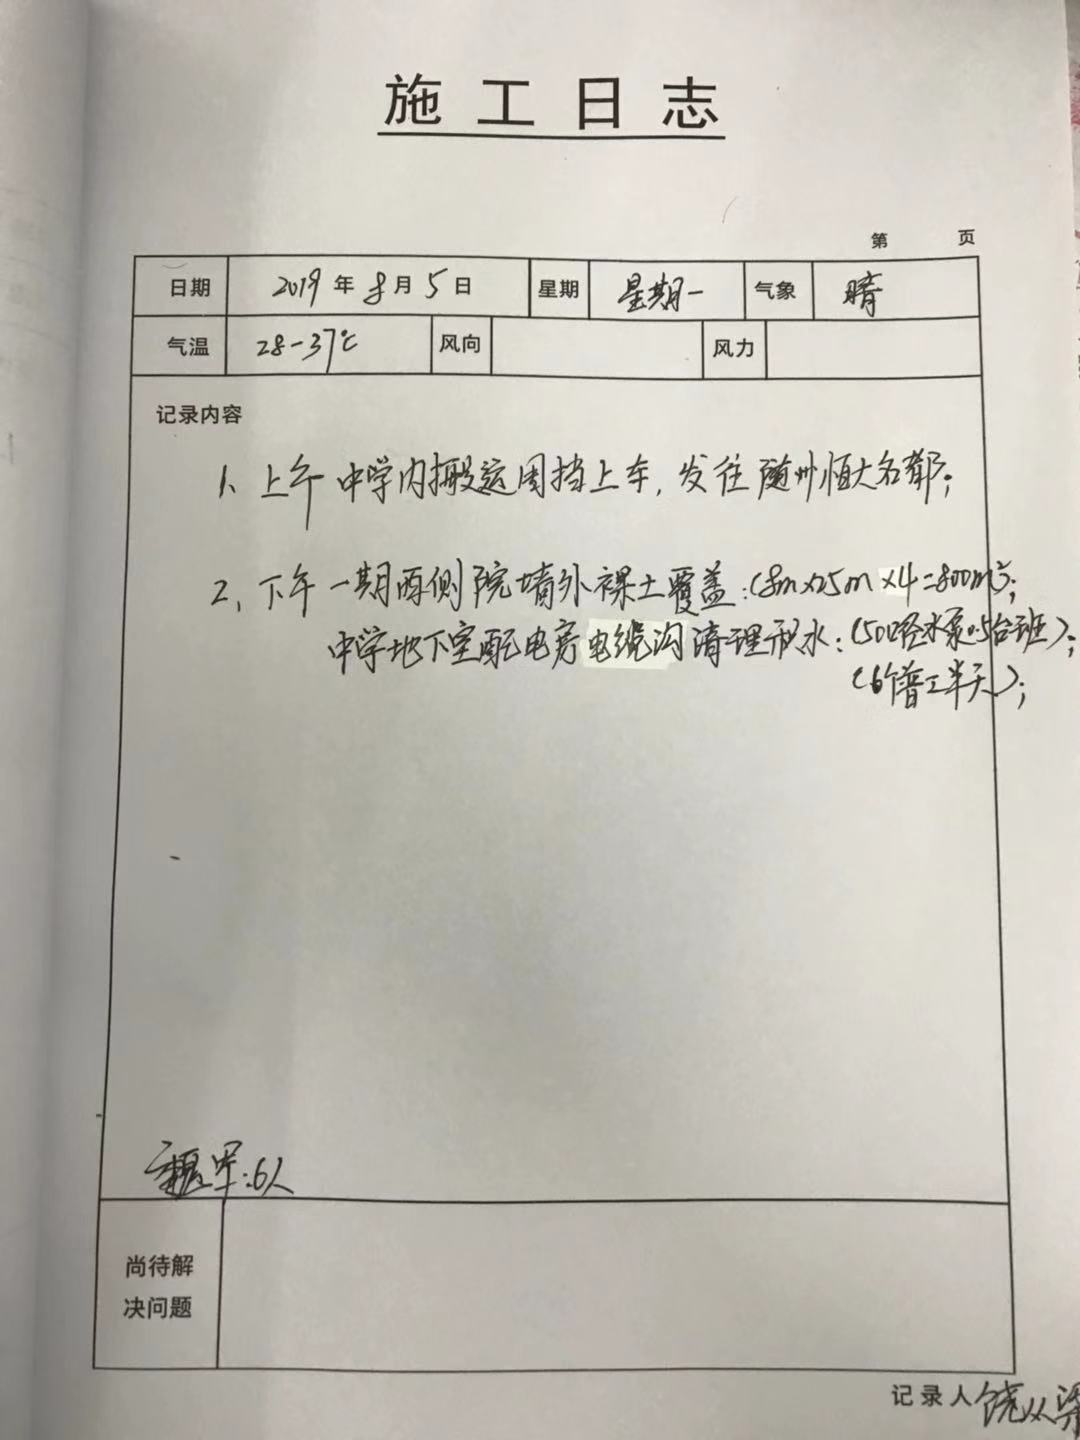 施工日志
第 页
日期 2019年8月5日 星期 星期一 气象 晴
气温 28-37℃ 风向 风力
记录内容
1、上午中学内搬运围挡上车，发往随州恒大名都；
2、下午一期西侧院墙外裸土覆盖：(8m×25m×4=800m²；
中学地下室配电房电缆沟清理积水：(50口径水泵0.5台班)；
(6个普工半天)；
军：6人
尚待解
决问题
记录人 饶从梁